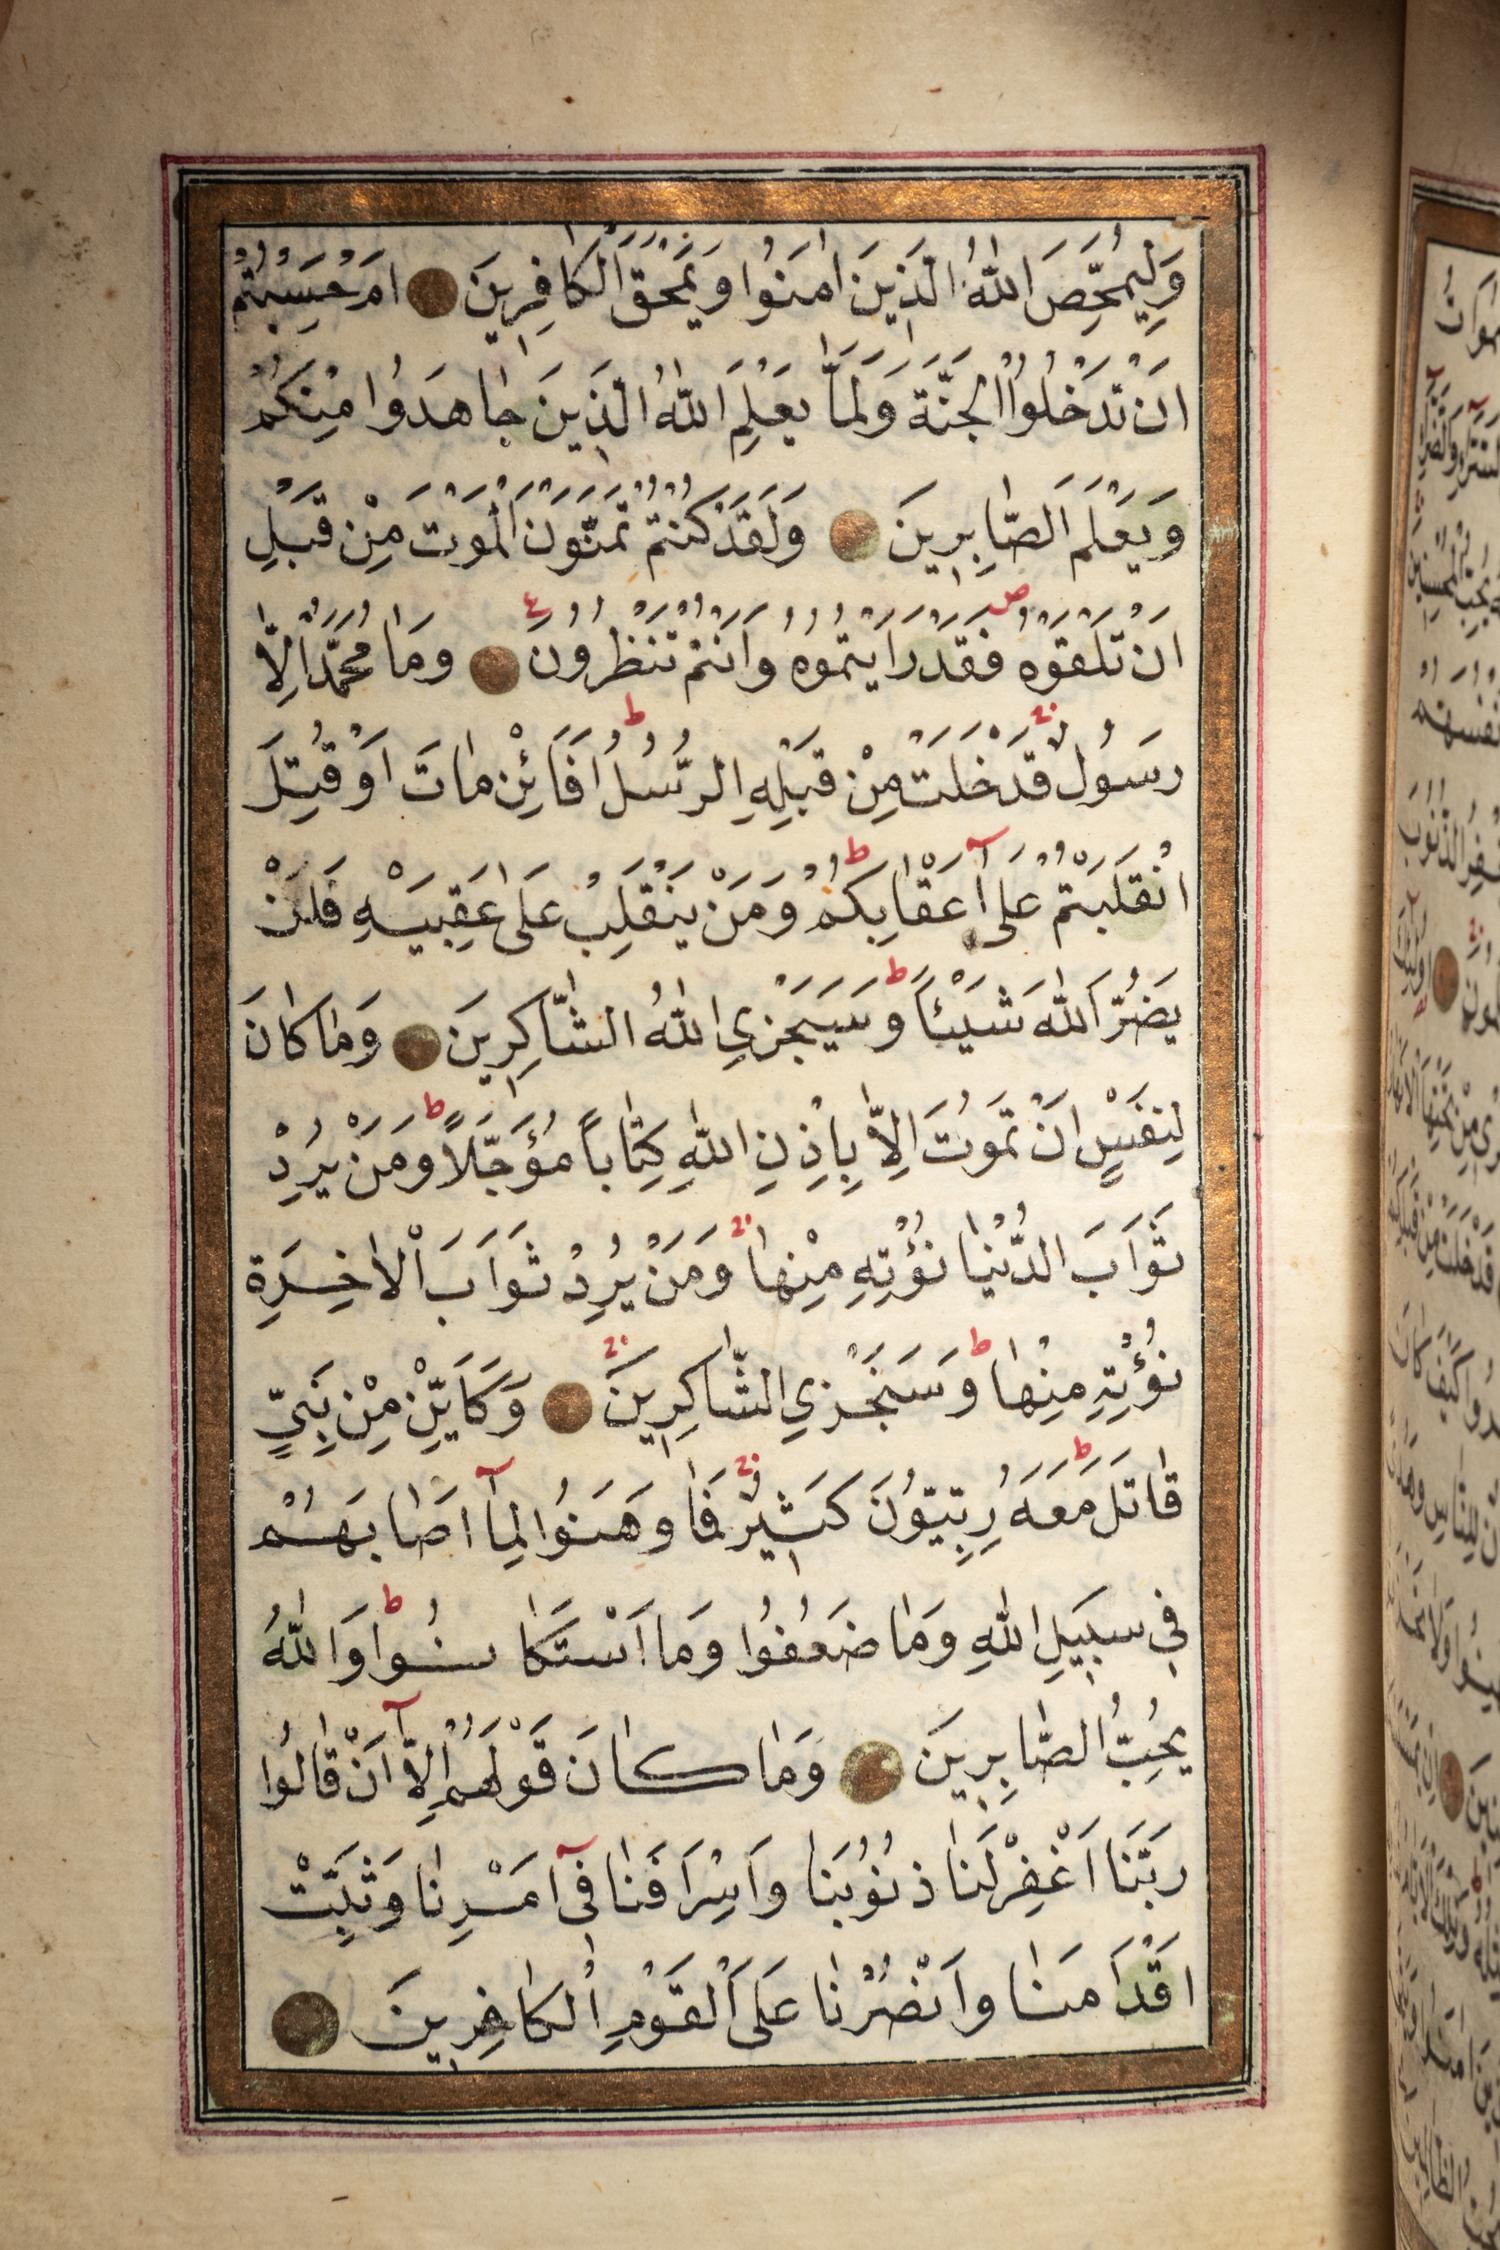 وَلِيُمَحِّصَ اللّٰهُ الَّذِينَ اٰمَنُوا وَيَمْحَقَ الْكَافِرِينَ اَمْ حَسِبْتُمْ
اَنْ تَدْخُلُوا الْجَنَّةَ وَلَمَّا يَعْلَمِ اللّٰهُ الَّذِينَ جَاهَدُوا مِنْكُمْ
وَيَعْلَمَ الصَّابِرِينَ وَلَقَدْ كُنْتُمْ تَمَنَّوْنَ الْمَوْتَ مِنْ قَبْلِ
اَنْ تَلْقَوْهُ ص فَقَدْ رَاَيْتُمُوهُ وَاَنْتُمْ تَنْظُرُونَ ع وَمَا مُحَمَّدٌ اِلَّا
رَسُولٌ قَدْ خَلَتْ مِنْ قَبْلِهِ الرُّسُلُ ط اَفَائِنْ مَاتَ اَوْ قُتِلَ
انْقَلَبْتُمْ عَلٰٓى اَعْقَابِكُمْ ط وَمَنْ يَنْقَلِبْ عَلٰى عَقِبَيْهِ فَلَنْ
يَضُرَّ اللّٰهَ شَيْئًا ط وَسَيَجْزِي اللّٰهُ الشَّاكِرِينَ وَمَا كَانَ
لِنَفْسٍ اَنْ تَمُوتَ اِلَّا بِاِذْنِ اللّٰهِ كِتَابًا مُؤَجَّلًا ط وَمَنْ يُرِدْ
ثَوَابَ الدُّنْيَا نُؤْتِهِ مِنْهَا وَمَنْ يُرِدْ ثَوَابَ الْاٰخِرَةِ
نُؤْتِهِ مِنْهَا ط وَسَنَجْزِي الشَّاكِرِينَ وَكَاَيِّنْ مِنْ نَبِيٍّ
قَاتَلَ ط مَعَهُ رِبِّيُّونَ كَثِيرٌ فَمَا وَهَنُوا لِمَٓا اَصَابَهُمْ
فِي سَبِيلِ اللّٰهِ وَمَا ضَعُفُوا وَمَا اسْتَكَانُوا ط وَاللّٰهُ
يُحِبُّ الصَّابِرِينَ وَمَا كَانَ قَوْلَهُمْ اِلَّٓا اَنْ قَالُوا
رَبَّنَا اغْفِرْ لَنَا ذُنُوبَنَا وَاِسْرَافَنَا فِيٓ اَمْرِنَا وَثَبِّتْ
اَقْدَامَنَا وَانْصُرْنَا عَلَى الْقَوْمِ الْكَافِرِينَ